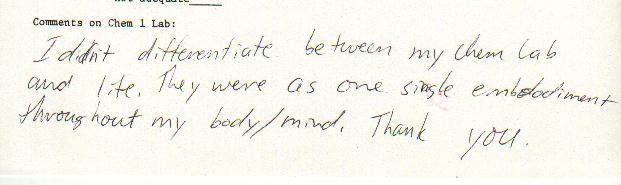 not adequate
Comments on Chem 1 Lab:
I didn't differentiate between my chem lab
and life. They were as one single embodiment
throughout my body/mind. Thank you.